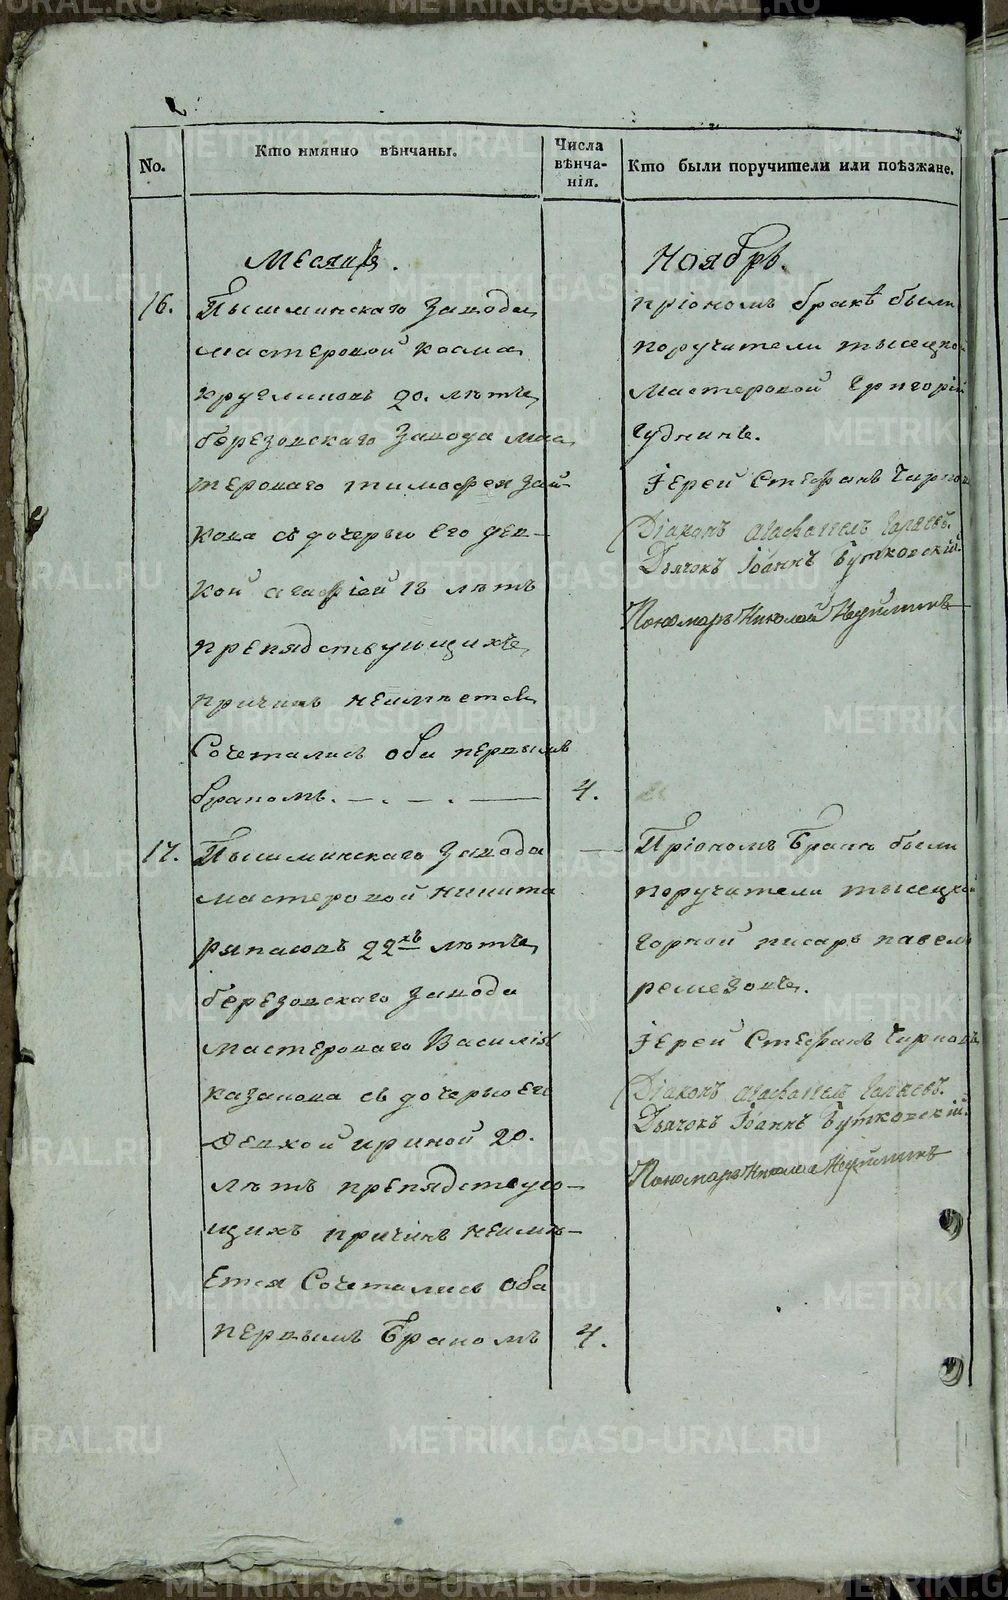 No.
Кто имянно вѣнчаны.
Числа
вѣнча-
нія.
Кто были поручители или поѣзжане.
Месяца.
Ноябрь.
16.
Пышминскаго завода
мастеровой косма
кругликовъ 20. лѣтъ
березовскаго завода мас
тероваго тимофея зай-
кова съ дочерью Его Дев-
кой агафіей 18 лѣтъ
препядствующихъ
причинъ неимѣется
Сочетались оба первымъ
бракомъ.
4.
пріономъ бракѣ были
поручители тысецкой
мастеровой Григорій
гуднинъ.
Іерей Стефанъ
Діаконъ агафангелъ
Дьячокъ Іоаннъ Бутковскій.
Пономарь Николай
17.
Пышминскаго завода
мастеровой никита
22хъ лѣтъ
березовскаго завода
мастероваго Василія
казакова съ дочерью Его
Девкой ириной 20.
лѣтъ препядствую-
щихъ причинъ неимѣ-
Ется Сочетались Оба
первымъ Бракомъ
4.
Пріономъ Бракѣ были
поручители тысецкой
горной писарь павелъ
ремезовъ.
Іерей Стефанъ
Діаконъ агафангелъ
Дьячокъ Іоаннъ Бутковскій.
Пономарь Николай
METRIKI.GASO-URAL.RU